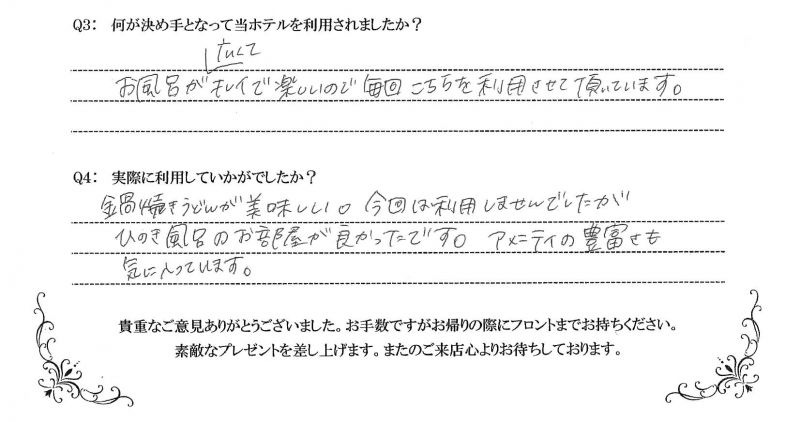 Q3: 何が決め手となって当ホテルを利用されましたか？
広くて
お風呂がキレイで楽しいので毎回こちらを利用させて頂いています。
Q4: 実際に利用していかがでしたか？
鍋焼きうどんが美味しい。今回は利用しませんでしたが
ひのき風呂のお部屋が良かったです。アメニティの豊富さも
気に入っています。
貴重なご意見ありがとうございました。お手数ですがお帰りの際にフロントまでお持ちください。
素敵なプレゼントを差し上げます。またのご来店心よりお待ちしております。